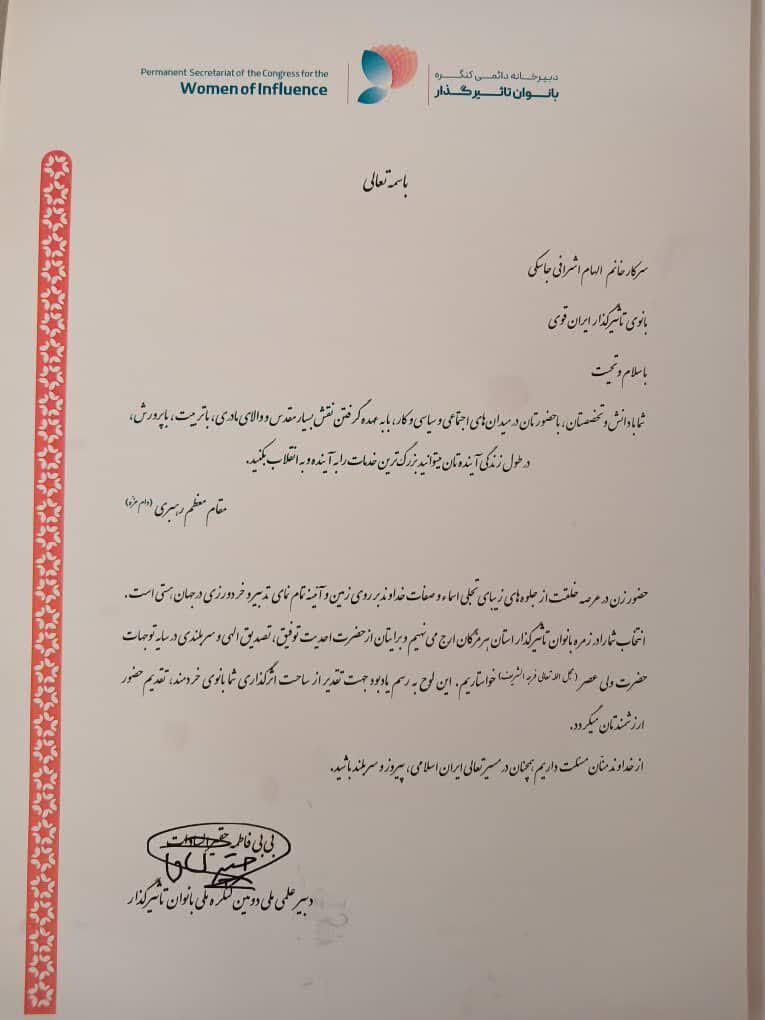 Permanent Secretariat of the Congress for the
Women of Influence
دبیرخانه دائمی کنگره
بانوان تاثیرگذار
باسمه تعالی
سرکار خانم الهام اشرافی جاسکی
بانوی تأثیرگذار ایران قوی
با سلام و تحیت
شما با دانش و تخصصتان، با حضورتان در میدان‌های اجتماعی و سیاسی و کار، با به عهده گرفتن نقش بسیار مقدس و والای مادری، با تربیت، با پرورش،
در طول زندگی آینده تان میتوانید بزرگ ترین خدمات را به آینده و به انقلاب بکنید.
مقام معظم رهبری (دام عزّه)
حضور زن در عرصه خلقت از جلوه های زیبای تجلی اسماء و صفات خداوند بر روی زمین و آئینه تمام نمای تدبیر و خردورزی در جهان هستی است.
انتخاب شما را در زمره بانوان تأثیرگذار استان هرمزگان ارج می نهیم و برایتان از حضرت احدیت توفیق، تصدیق الهی و سربلندی در سایه توجهات
حضرت ولی عصر (عجل الله تعالی فرجه الشریف) خواستاریم. این لوح به رسم یادبود جهت تقدیر از ساحت اثرگذاری شما بانوی خردمند، تقدیم حضور
ارزشمندتان میگردد.
از خداوند منّان مسئلت داریم همچنان در مسیر تعالی ایران اسلامی، پیروز و سربلند باشید.
بی بی فاطمه حقیرالسادات
دبیر علمی ملی دومین کنگره ملی بانوان تأثیرگذار